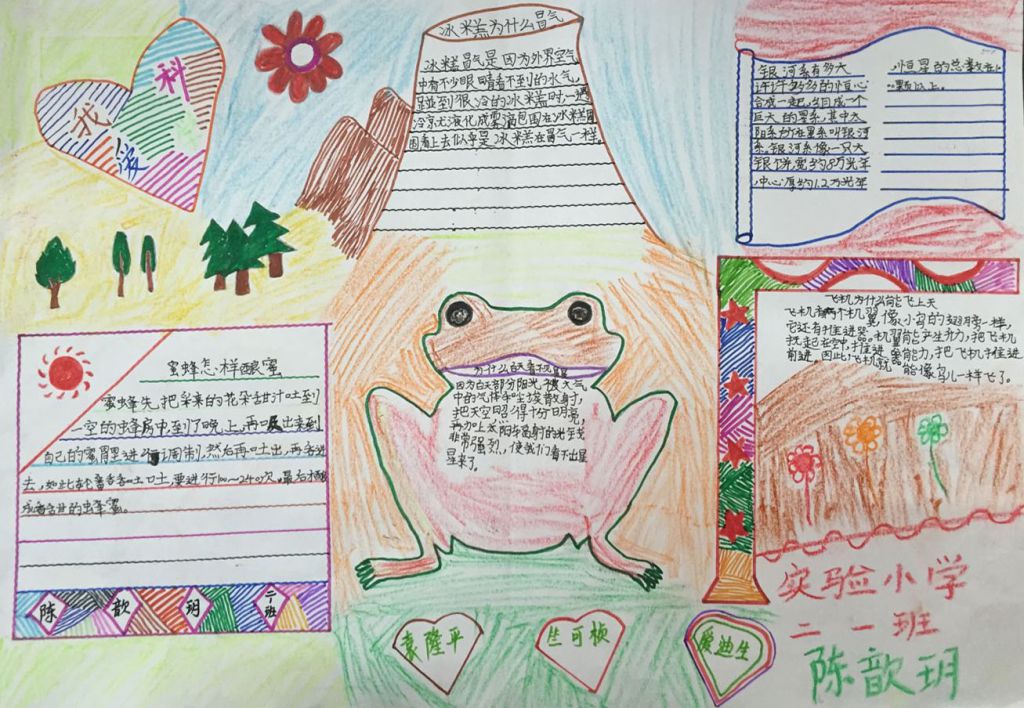 我
爱
科
冰米糕为什么冒气
冰米糕冒气是因为外界空气
中有不少眼睛看不到的水气,
到很冷的冰米糕时,一遇
冷就液化成雾滴包围在冰米糕周
围看上去似乎是冰米糕在冒气一样。
银河系有多大
许许多多的恒心
合成一起,组成一个
巨大的星系,其中太
阳系所在星系叫银河
系,银河系像一只大
银饼,宽约8万光年
中心厚约1.2万光年
恒星的总数在
颗以上。
蜜蜂怎样酿蜜
蜜蜂先把采来的花朵甜汁吐到
一空的蜂房中,到了晚上,再吸出来到
自己的蜜胃里进行调制,然后再吐出,再吞进
去,如此轮番吞吞吐吐,要进行100~240次,最后才酿
成香甜的蜂蜜。
陈 歆 玥 二班
为什么白天看不见星星
因为白天部分阳光被大气
中的气体和尘埃散射,
把天空照得十分明亮,
再加上太阳辐射的光线
非常强烈,使我们看不出星
星来了。
飞机为什么能飞上天
飞机有两个机翼,像小鸟的翅膀一样,
它还有推进器。机翼能产生升力,把飞机
托起在空中,推进器能力,把飞机推进
前进。因此,飞机就能像鸟儿一样飞了。
袁隆平
竺可桢
爱迪生
实验小学
二一班
陈歆玥